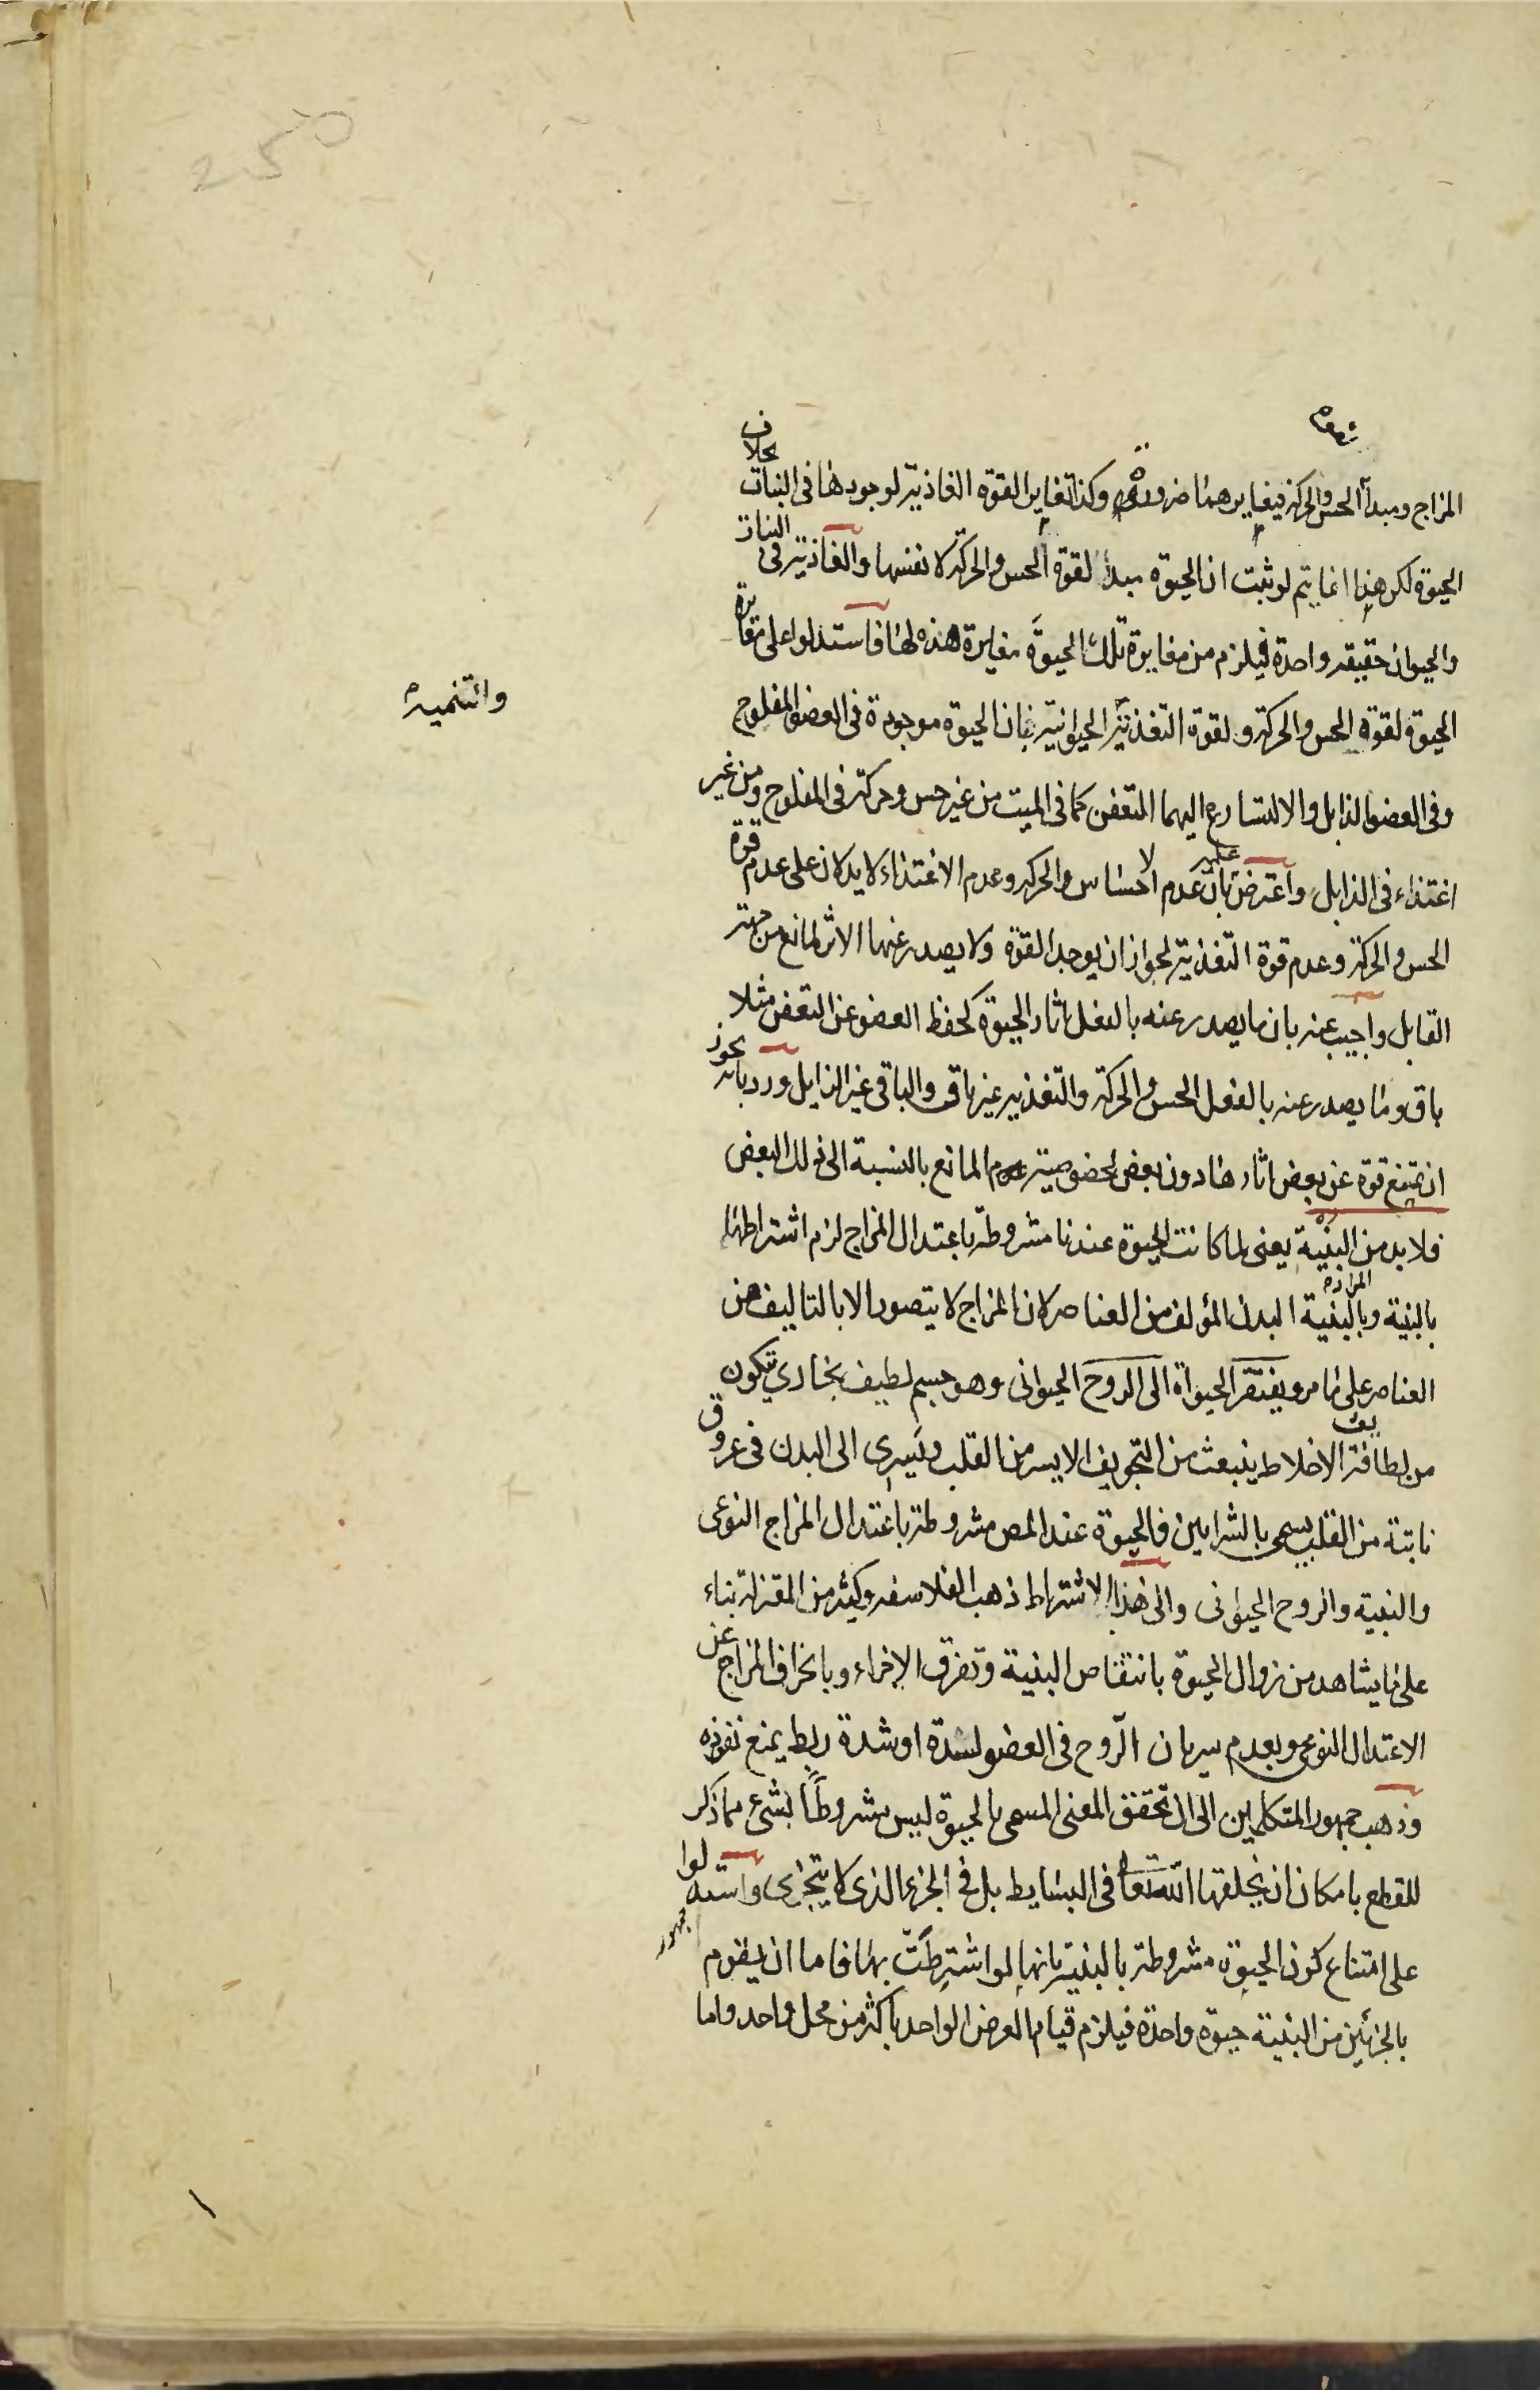 المزاج ومبدأ الحس والحركة فيغايرهما ضرورة وكذا تغاير القوة الغاذية لوجودها فى النبات بخلاف
الحيوة لكن هذا انما يتم لو ثبت ان الحيوة مبدأ لقوة الحس والحركة لا نفسها والغاذية فى النبات
والحيوان حقيقة واحدة فيلزم من مغايرة تلك الحيوة مغايرة هذه لها فاستدلوا على مغايرة
الحيوة لقوة الحس والحركة ولقوة التغذية الحيوانية بان الحيوة موجودة فى العضو المفلوج
وفى العضو الذابل والا لتسارع اليهما التعفن كما فى الميت من غير حس وحركة فى المفلوج ومن غير
اغتذاء فى الذابل واعترض عليه بان عدم الاحساس والحركة وعدم الاغتذاء لا يدلان على عدم قوة
الحس والحركة وعدم قوة التغذية لجواز ان يوجد القوة ولا يصدر عنها الاثر لمانع من جهة
القابل واجيب عنه بان ما يصدر عنه بالفعل اثار الحيوة كحفظ العضو عن التعفن مثلا
باق وما يصدر عنه بالفعل الحس والحركة والتغذيه غير باق والباقى غير الزايل ورد بانه يجوز
ان تمتنع قوة عن بعض اثارها دون بعض لخصوصية المانع بالنسبة الى ذلك البعض
فلا بد من البنية يعنى لما كانت الحيوة عندنا مشروطة باعتدال المزاج لزم اشتراطها
بالبنية وبالبنية المراده البدن المؤلف من العناصر لان المزاج لا يتصور الا بالتاليف من
العناصر على ما مر ويفتقر الحيوة الى الروح الحيوانى وهو جسم لطيف بخارى يتكون
من لطافة الاخلاط ينبعث من التجويف الايسر من القلب ويسرى الى البدن فى عروق
نابتة من القلب يسمى بالشرايين فالحيوة عند المص مشروطة باعتدال المزاج النوعى
والبنية والروح الحيوانى والى هذا الاشتراط ذهب الفلاسفه وكثير من المعتزلة بناء
على ما يشاهد من زوال الحيوة بانتقاص البنية وتفرق الاجزاء وبانحراف المزاج عن
الاعتدال النوعى وبعدم سريان الروح فى العضو لشدة او شدة ربط يمنع نفوذه
وذهب جمهور المتكلمين الى ان تحقق المعنى المسمى بالحيوة ليس مشروطا بشىء مما ذكر
للقطع بامكان ان يخلقها الله تعالى فى البسايط بل فى الجزء الذى لا يتجزى واستدلوا
على امتناع كون الحيوة مشروطة بالبنية بانها لو اشترطت بها فاما ان يقوم
بالجزئين من البنية حيوة واحدة فيلزم قيام العرض الواحد باكثر من محل واحد واما
والتنميه
250